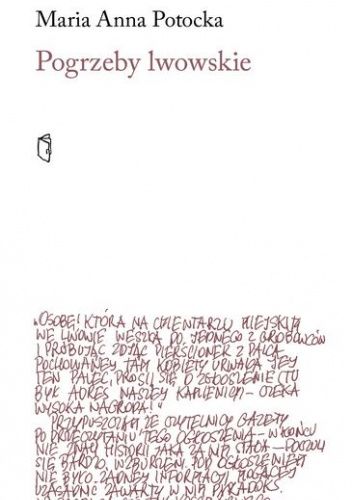 Maria Anna Potocka
Pogrzeby lwowskie
„OSOBĘ, KTÓRA NA CMENTARZU MIEJSKIM
WE LWOWIE WESZŁA DO JEDNEGO Z GROBOWCÓW
I PRÓBUJĄC ZDJĄĆ PIERŚCIONEK Z PALCA
POCHOWANEJ TAM KOBIETY URWAŁA JEJ
TEN PALEC, PROSI SIĘ O ZGŁOSZENIE (TU
BYŁ ADRES NASZEJ KAMIENICY) – CZEKA
WYSOKA NAGRODA!"
PRZYPUSZCZAM, ŻE CZYTELNICY GAZETY
PO PRZECZYTANIU TEGO OGŁOSZENIA – W KOŃCU
NIE ZNALI HISTORII, JAKA ZA NIM STAŁA – POCZULI
SIĘ BARDZO WZBURZENI. POD OGŁOSZENIEM
NIE BYŁO ŻADNEJ INFORMACJI MOGĄCEJ
UZASADNIĆ ZAWARTY W NIM PARADOKS